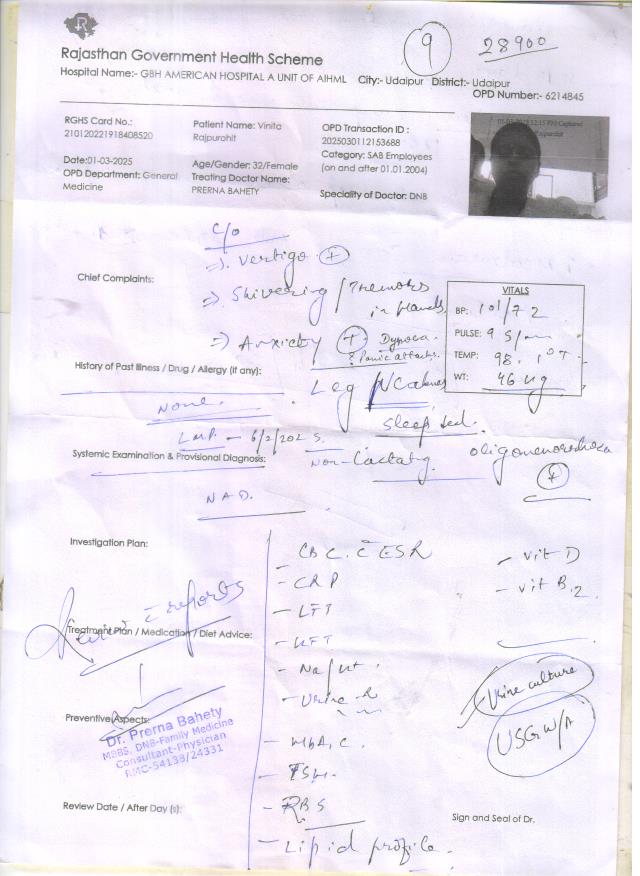 9
28900
Rajasthan Government Health Scheme
Hospital Name:- GBH AMERICAN HOSPITAL A UNIT OF AIHML City:- Udaipur District:- Udaipur
OPD Number:- 6214845
RGHS Card No.:
210120221918408520
Patient Name: Vinita
Rajpurohit
OPD Transaction ID :
2025030112153688
Category: SAB Employees
(on and after 01.01.2004)
Date:01-03-2025
OPD Department: General
Medicine
Age/Gender: 32/Female
Treating Doctor Name:
PRERNA BAHETY
Speciality of Doctor: DNB
C/o
Chief Complaints:
=> Vertigo +
=> Shivering / Tremors
in hands
=> Anxiety +
Panic attacks.
VITALS
BP: 101/72
PULSE: 95/
TEMP: 98.1°F
WT: 46 kg
History of Past Illness / Drug / Allergy (if any):
None.
Leg
Sleep
LMP - 6/2/2025.
Systemic Examination & Provisional Diagnosis:
Non-Lactatg.
oligomenorrhoea
+
NAD.
Investigation Plan:
- CBC. C ESR
- CRP
- LFT
- KFT
- Na/K+.
- Urine R
- HbA1C.
- TSH.
- RBS
- Lipid profile.
- Vit D
- Vit B12
Urine culture
USG W/A
reports
Treatment Plan / Medication / Diet Advice:
Preventive Aspects:
Dr. Prerna Bahety
MBBS, DNB-Family Medicine
Consultant-Physician
RMC-54138/24331
Review Date / After Day (s):
Sign and Seal of Dr.